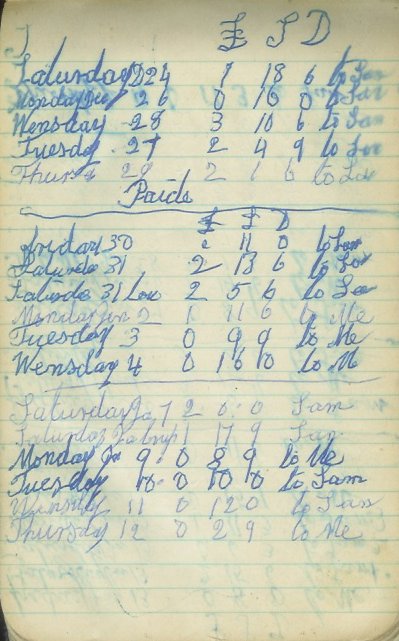 £ S D
Saturday D 24 7 18 6 to Sam
Monday Dec 26 0 16 0 to Sam
Wensday 28 3 10 6 to Sam
Tuesday 27 2 4 9 to
Thurs 29 2 1 6 to
Paids
£ D
friday 30 11 0 to
Saturda 31 2 13 6 to
Saturda 31 2 5 6 to
Monday Jan 2 1 11 6 to Me
Tuesday 3 0 9 9 to Me
Wensday 4 0 16 0 to M
Saturday Ja 7 2 0 0 Sam
Saturday 1 17 9 Sam
Monday Ja 9 0 8 9 to Me
Tuesday 10 0 10 0 to Sam
Wensday 11 0 12 0 to Sam
Thursday 12 0 2 9 to Me